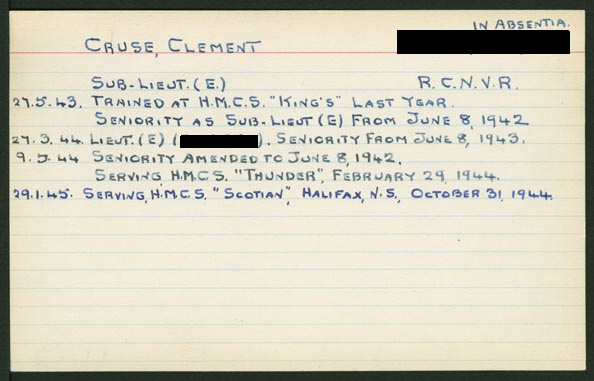 IN ABSENTIA.
CRUSE, CLEMENT
SUB-LIEUT. (E.) R.C.N.V.R.
27.5.43. TRAINED AT H.M.C.S. "KING'S" LAST YEAR.
SENIORITY AS SUB-LIEUT (E) FROM JUNE 8, 1942
27.3.44. LIEUT. (E) ( ). SENIORITY FROM JUNE 8, 1943.
9.5.44 SENIORITY AMENDED TO JUNE 8, 1942.
SERVING H.M.C.S. "THUNDER", FEBRUARY 29, 1944.
29.1.45. SERVING, H.M.C.S. "SCOTIAN", HALIFAX, N.S., OCTOBER 31, 1944.